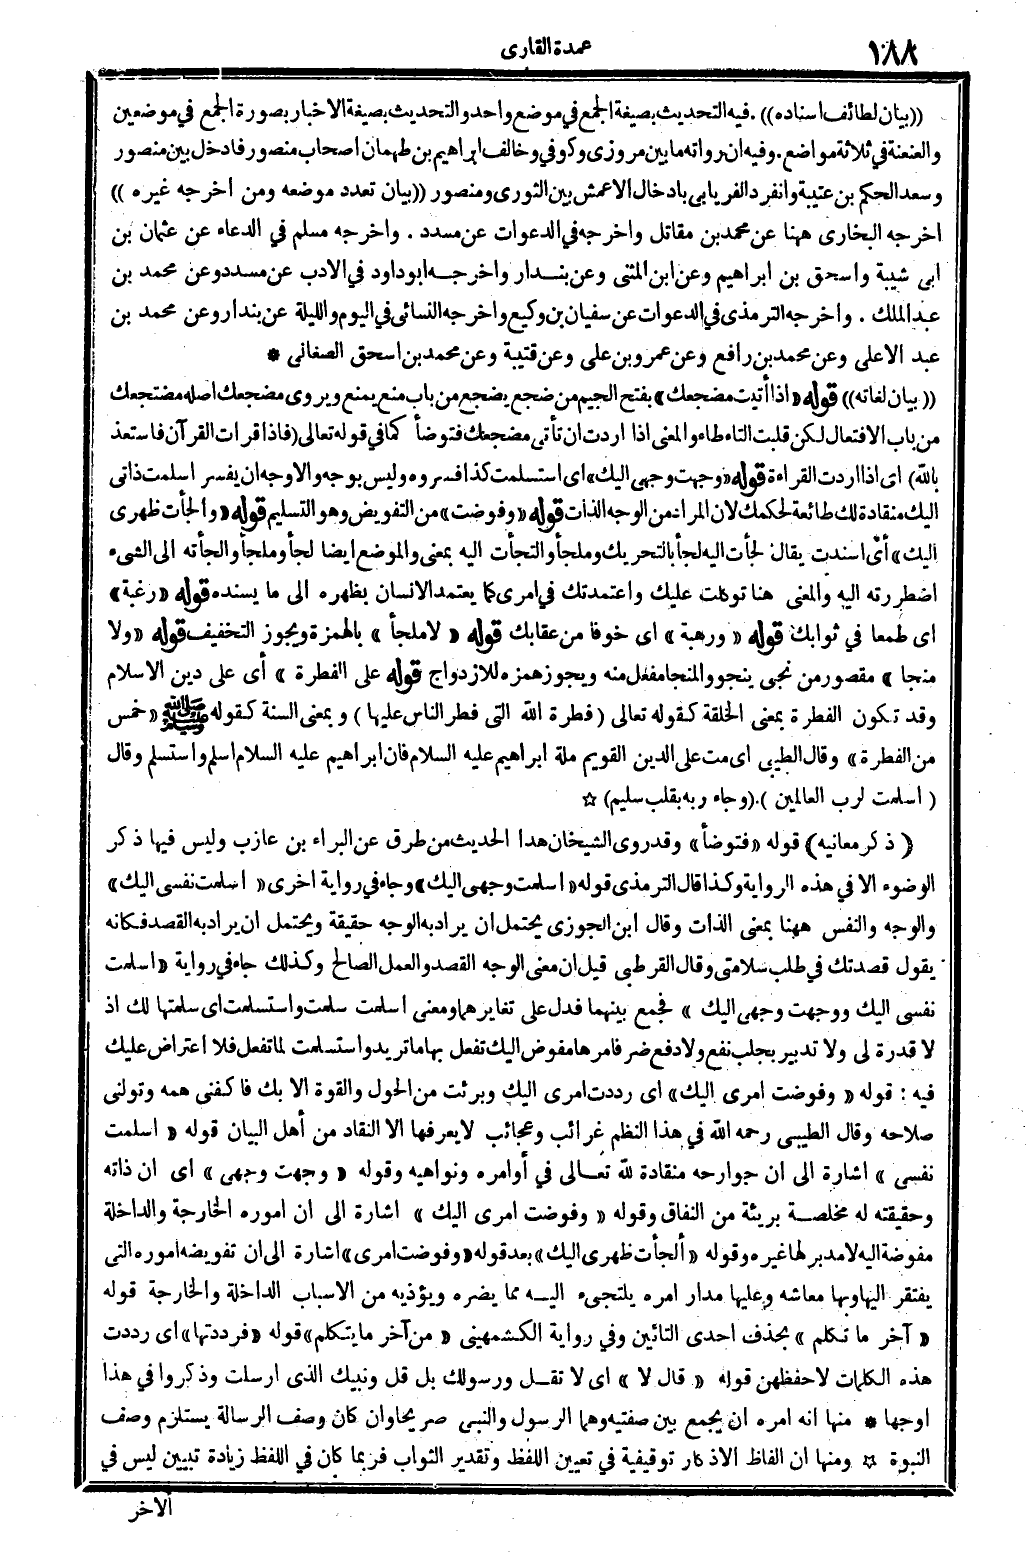 ١٨٨
عمدة القارى
((بيان لطائف اسناده)). فيه التحديث بصيغة الجمع في موضع واحد والتحديث بصيغة الاخبار بصورة الجمع في موضعين
والعنعنة في ثلاثة مواضع. وفيه ان رواته ما بين مروزى وكوفي وخالف ابراهيم بن طهمان اصحاب منصور فادخل بين منصور
وسعد الحكم بن عتيبة وانفرد الفريابى بادخال الاعمش بين الثورى ومنصور ((بيان تعدد موضعه ومن اخرجه غيره))
اخرجه البخارى ههنا عن محمد بن مقاتل واخرجه في الدعوات عن مسدد . واخرجه مسلم في الدعاء عن عثمان بن
ابى شيبة واسحق بن ابراهيم وعن ابن المثنى وعن بنــدار واخرجــه ابو داود في الادب عن مسدد وعن محمد بن
عبد الملك . واخرجه الترمذى في الدعوات عن سفيان بن وكيع واخرجه النسائى في اليوم والليلة عن بندار وعن محمد بن
عبد الاعلى وعن محمد بن رافع وعن عمرو بن على وعن قتيبة وعن محمد بن اسحق الصغانى *
((بيان لغاته)) قوله «اذا أتيت مضجعك» بفتح الجيم من ضجع يضجع من باب منع يمنع ويروى مضجعك اصله مضتجعك
من باب الافتعال لكن قلبت التاء طاء والمعنى اذا اردت ان تأتى مضجعك فتوضأ كما في قوله تعالى (فاذا قرات القرآن فاستعذ
بالله) اى اذا اردت القراءة قوله «وجهت وجهى اليك» اى استسلمت كذا فسروه وليس بوجه والاوجه ان يفسر اسلمت ذاتى
اليك منقادة لك طائعة لحكمك لان المراد من الوجه الذات قوله «وفوضت» من التفويض وهو التسليم قوله «والجأت ظهرى
اليك» أى اسندت يقال لجأت اليه لجأ بالتحريك وملجأ والتجأت اليه بمعنى والموضع ايضا لجأ وملجأ والجأته الى الشىء
اضطررته اليه والمعنى هنا توكلت عليك واعتمدتك في امرى كما يعتمد الانسان بظهره الى ما يسنده قوله «رغبة»
اى طمعا في ثوابك قوله «ورهبة» اى خوفا من عقابك قوله «لا ملجأ» بالهمزة ويجوز التخفيف قوله «ولا
منجا» مقصور من نجى ينجو والمنجا مفعل منه ويجوز همزه للازدواج قوله على الفطرة» أى على دين الاسلام
وقد تكون الفطرة بمعنى الخلقة كقوله تعالى (فطرة الله التى فطر الناس عليها) وبمعنى السنة كقوله ﷺ «خمس
من الفطرة» وقال الطيبى اى مت على الدين القويم ملة ابراهيم عليه السلام فان ابراهيم عليه السلام اسلم واستسلم وقال
(اسلمت لرب العالمين). (وجاء ربه بقلب سليم) ☆
(ذكر معانيه) قوله «فتوضأ» وقد روى الشيخان هذا الحديث من طرق عن البراء بن عازب وليس فيها ذكر
الوضوء الا في هذه الرواية وكذا قال الترمذى قوله «اسلمت وجهى اليك» وجاء في رواية اخرى «اسلمت نفسى اليك»
والوجه والنفس ههنا بمعنى الذات وقال ابن الجوزى يحتمل ان يراد به الوجه حقيقة ويحتمل ان يراد به القصد فكانه
يقول قصدتك في طلب سلامتى وقال القرطبى قيل ان معنى الوجه القصد والعمل الصالح وكذلك جاء في رواية «اسلمت
نفسى اليك ووجهت وجهى اليك» فجمع بينهما فدل على تغايرهما ومعنى اسلمت سلمت واستسلمت اى سلمتها لك اذ
لا قدرة لى ولا تدبير بجلب نفع ولا دفع ضر فامرها مفوض اليك تفعل بها ما تريد واستسلمت لما تفعل فلا اعتراض عليك
فيه : قوله «وفوضت امرى اليك» اى رددت امرى اليك وبرئت من الحول والقوة الا بك فاكفنى همه وتولنى
صلاحه وقال الطيبى رحمه الله في هذا النظم غرائب وعجائب لا يعرفها الا النقاد من أهل البيان قوله «اسلمت
نفسى» اشارة الى ان جوارحه منقادة لله تعــالى في أوامره ونواهيه وقوله «وجهت وجهى» اى ان ذاته
وحقيقته له مخلصــة بريئة من النفاق وقوله «وفوضت امرى اليك» اشارة الى ان اموره الخارجة والداخلة
مفوضة اليه لا مدبر لها غيره وقوله «ألجأت ظهرى اليك» بعد قوله «وفوضت امرى» اشارة الى ان تفويضه اموره التى
يفتقر اليها وبها معاشه وعليها مدار امره يلتجىء اليــه مما يضره ويؤذيه من الاسباب الداخلة والخارجة قوله
«آخر ما تكلم» بحذف احدى التائين وفي رواية الكشمهينى «من آخر ما يتكلم» قوله «فرددتها» اى رددت
هذه الكلمات لاحفظهن قوله «قال لا» اى لا تقــل ورسولك بل قل ونبيك الذى ارسلت وذكروا في هذا
اوجها * منها انه امره ان يجمع بين صفتيه وهما الرسول والنبى صريحا وان كان وصف الرسالة يستلزم وصف
النبوة ☆ ومنها ان الفاظ الاذكار توقيفية في تعيين اللفظ وتقدير الثواب فربما كان في اللفظ زيادة تبيين ليس في
الآخر